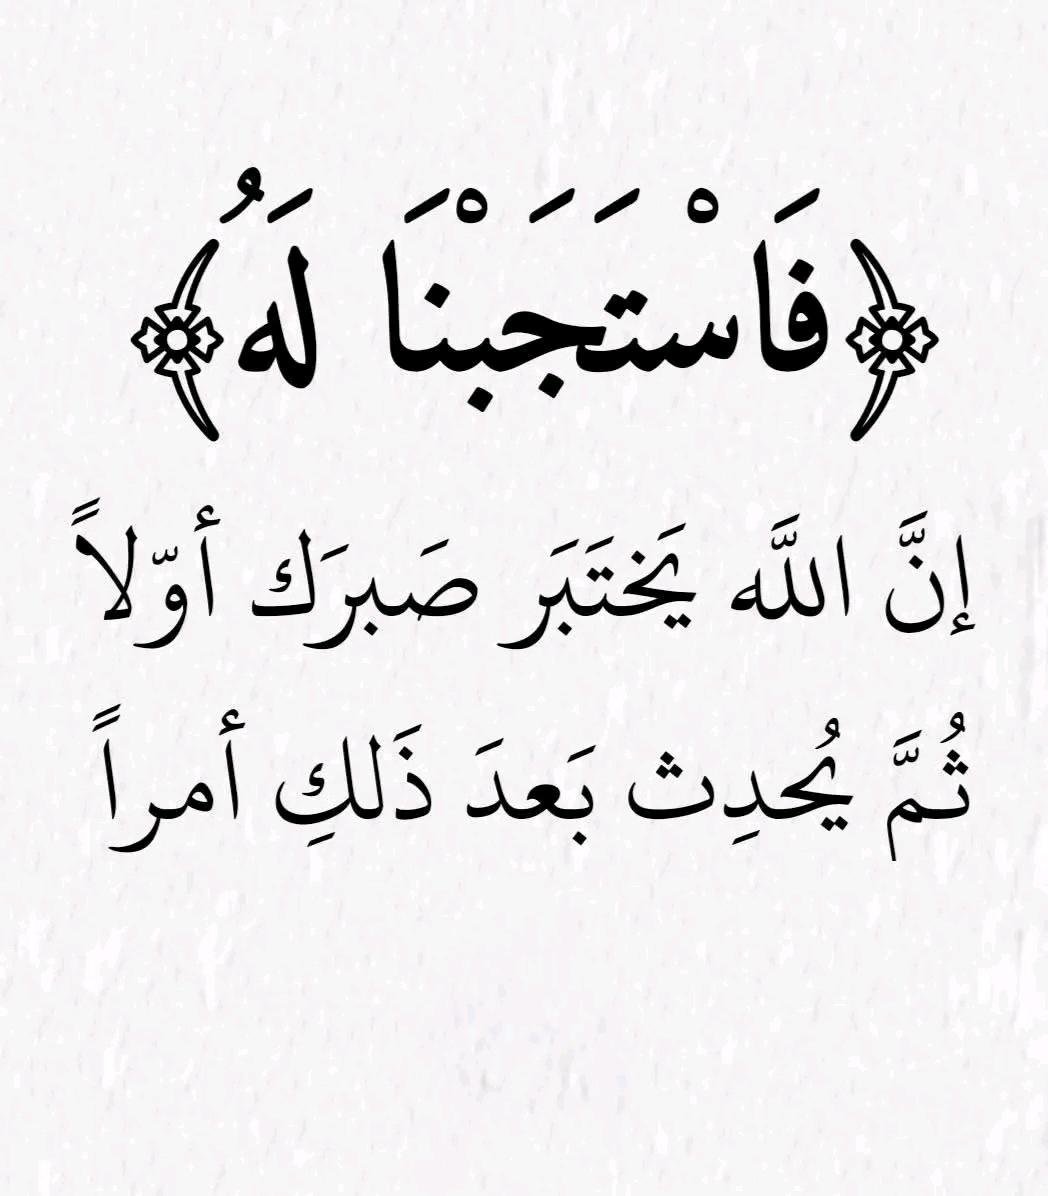 ﴿فَاسْتَجَبْنَا لَهُ﴾
إنَّ اللَّه يَختَبَر صَبرَك أوّلاً
ثُمَّ يُحدِث بَعدَ ذَلكِ أمراً